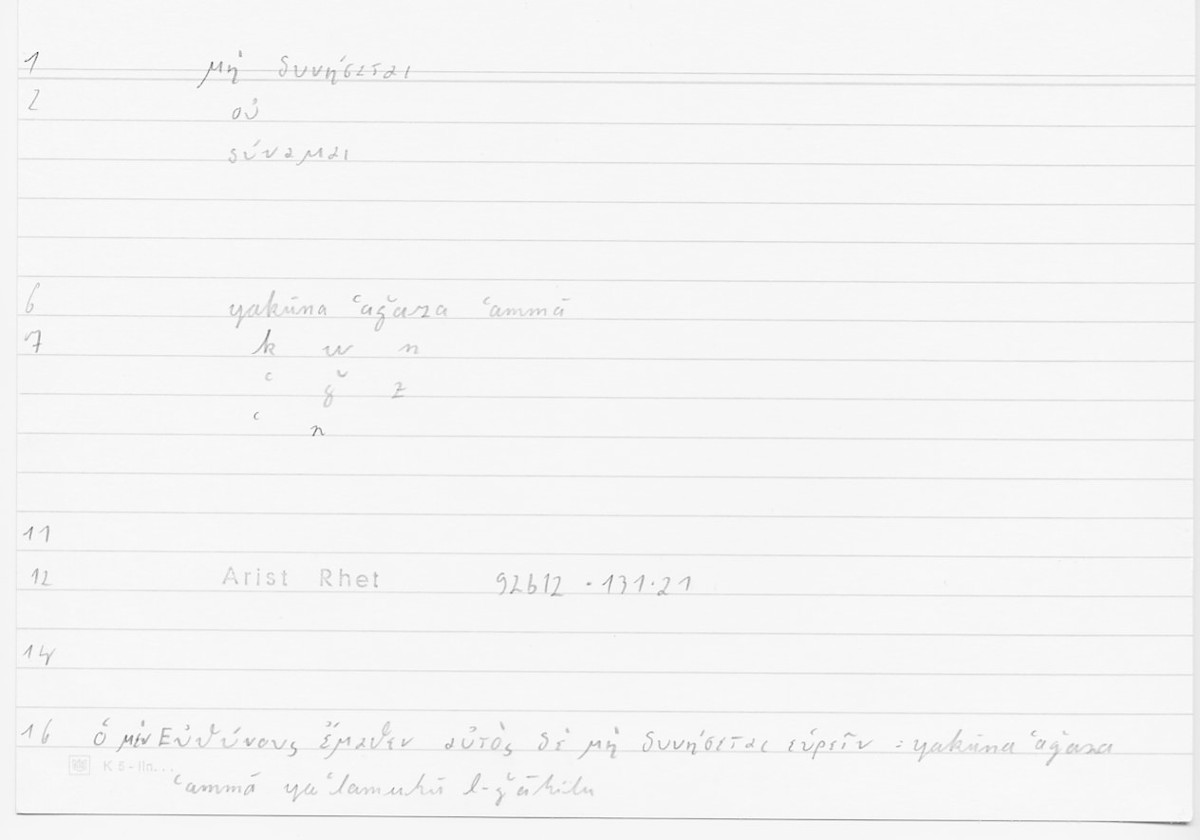 1 μὴ δυνήσεται
2 οὐ
δύναμαι
6 yakūna ʿaǧaza ʿammā
7 k w n
ʿ ǧ z
ʿ n
11
12 Arist Rhet 92b12 · 131·21
14
16 ὁ μὲν Εὐθύνους ἔμαθεν αὐτὸς δὲ μὴ δυνήσεται εὑρεῖν : yakūna ʿaǧaza
ʿammā yaʿlamuhū l-ǧāhilu